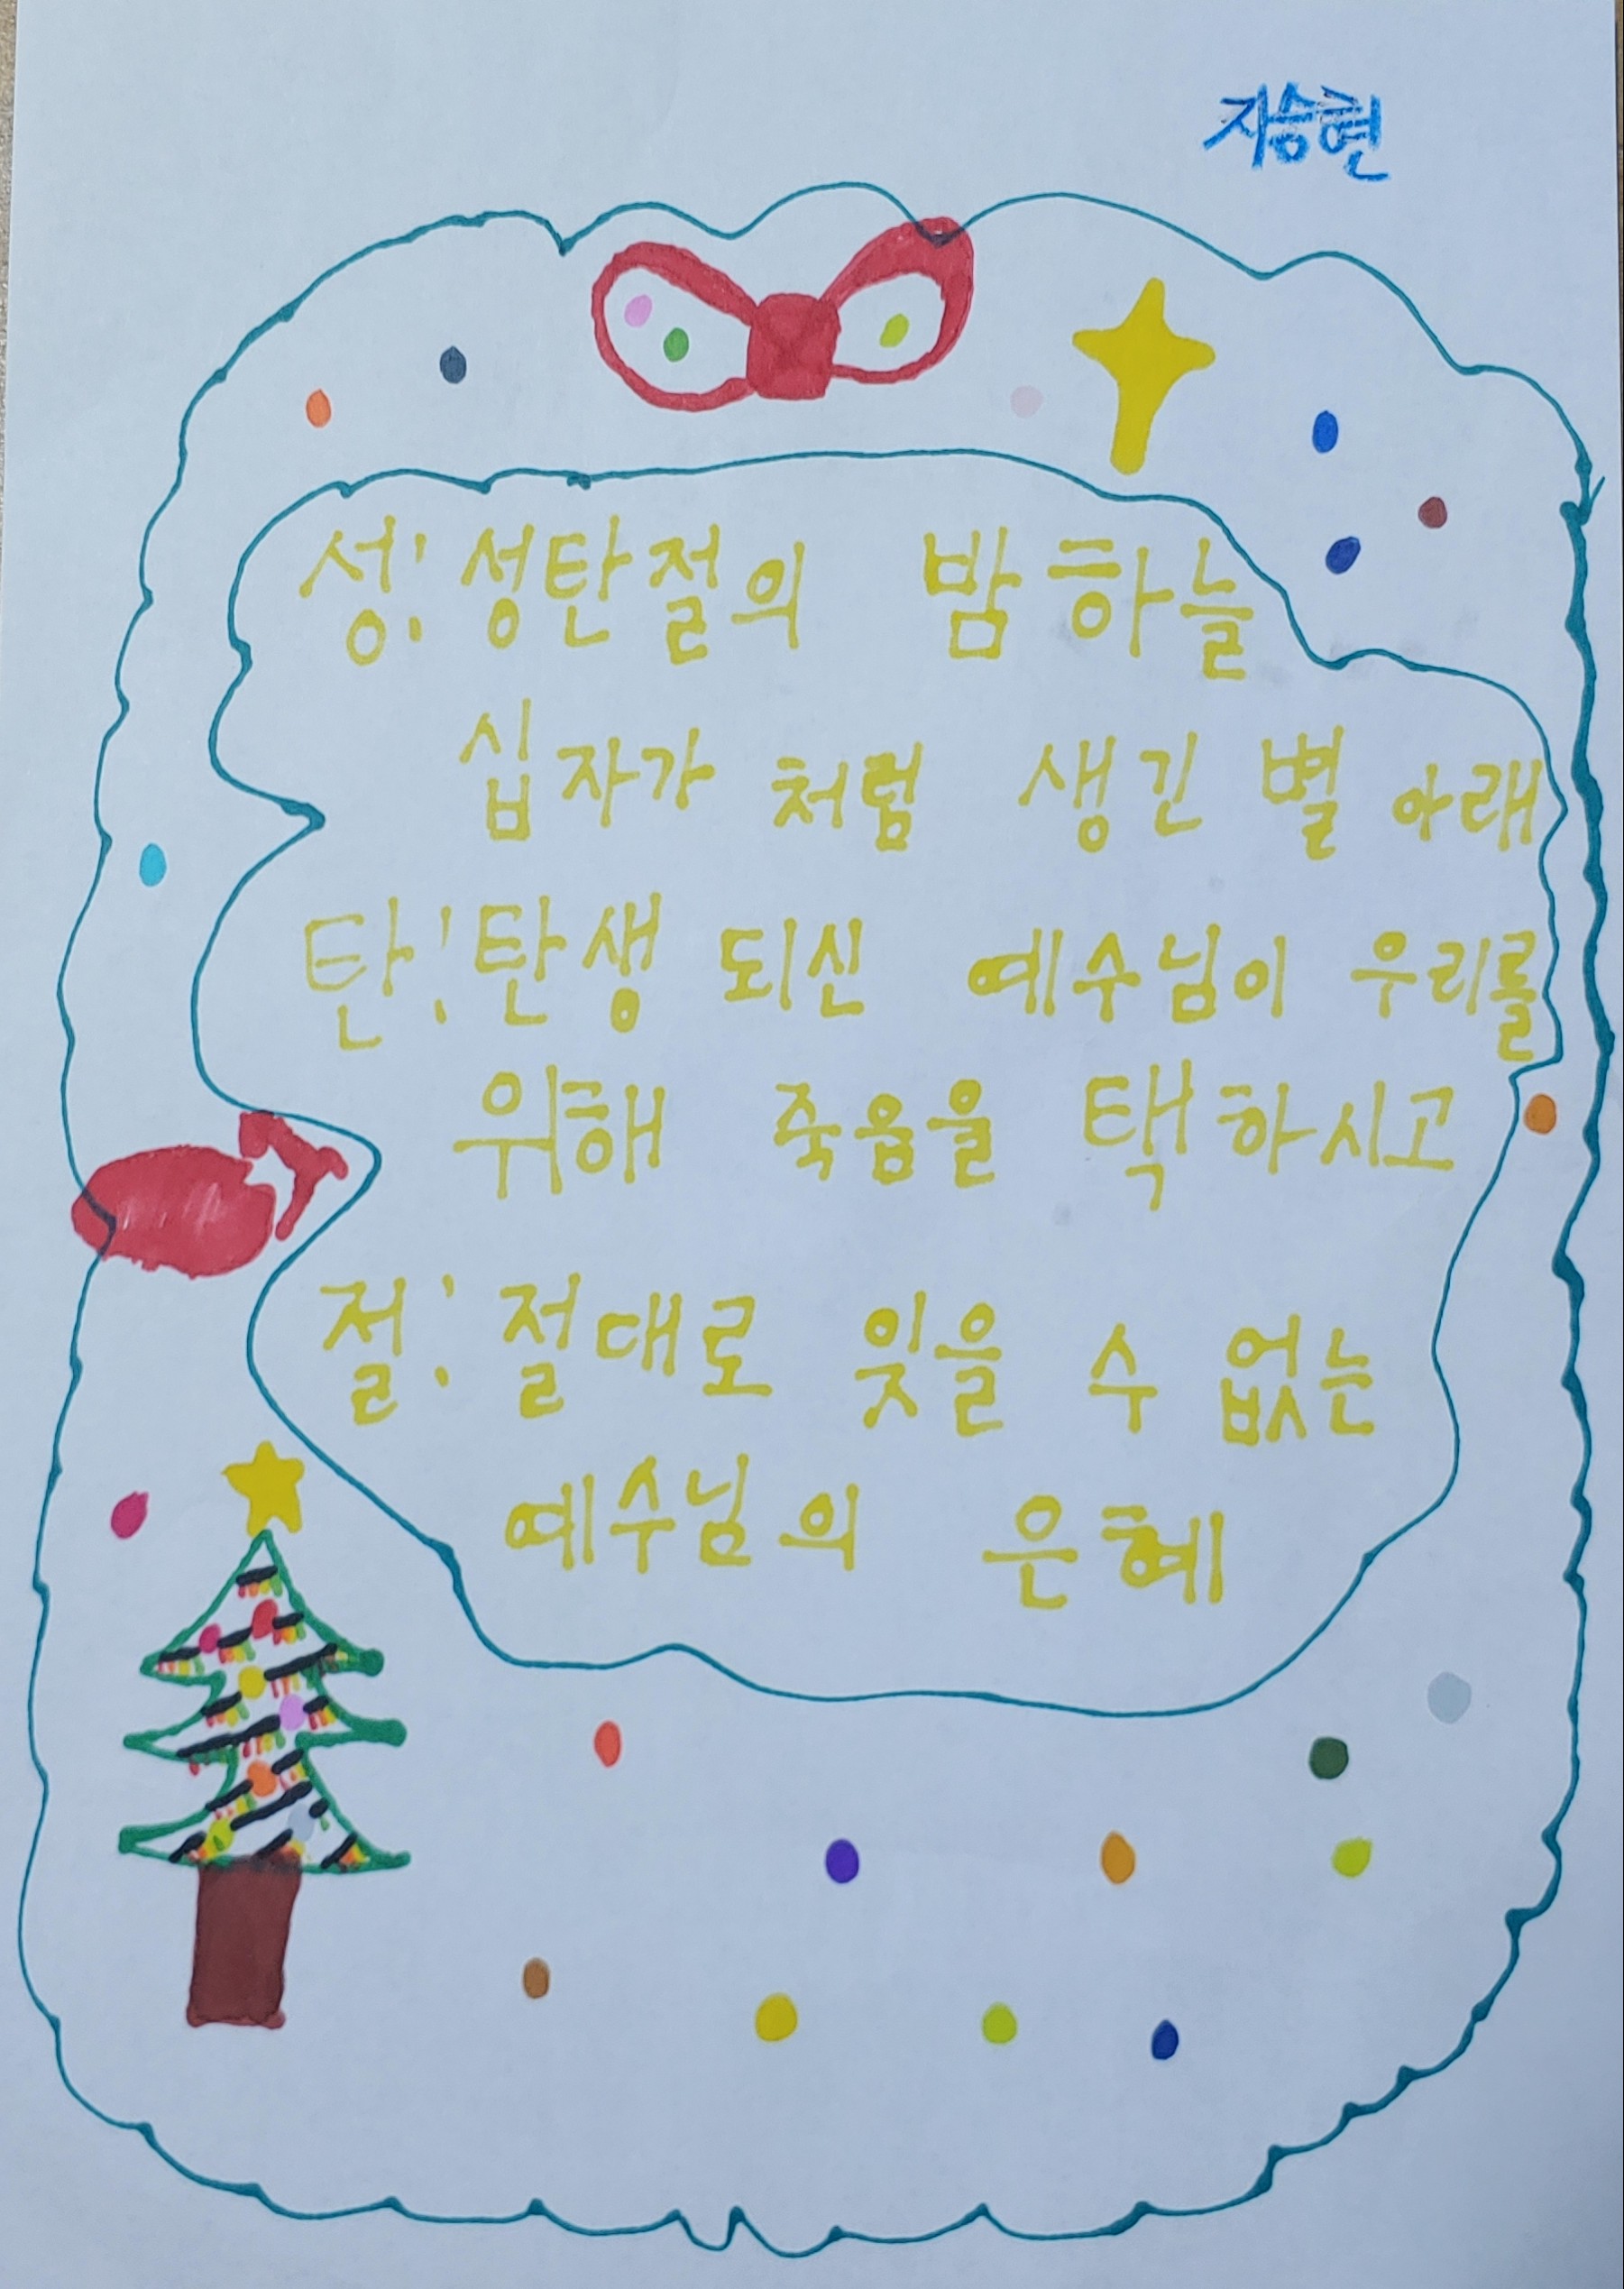 지승현
성: 성탄절의 밤하늘
십자가 처럼 생긴 별 아래
탄: 탄생 되신 예수님이 우리를
위해 죽음을 택하시고
절: 절대로 잊을 수 없는
예수님의 은혜